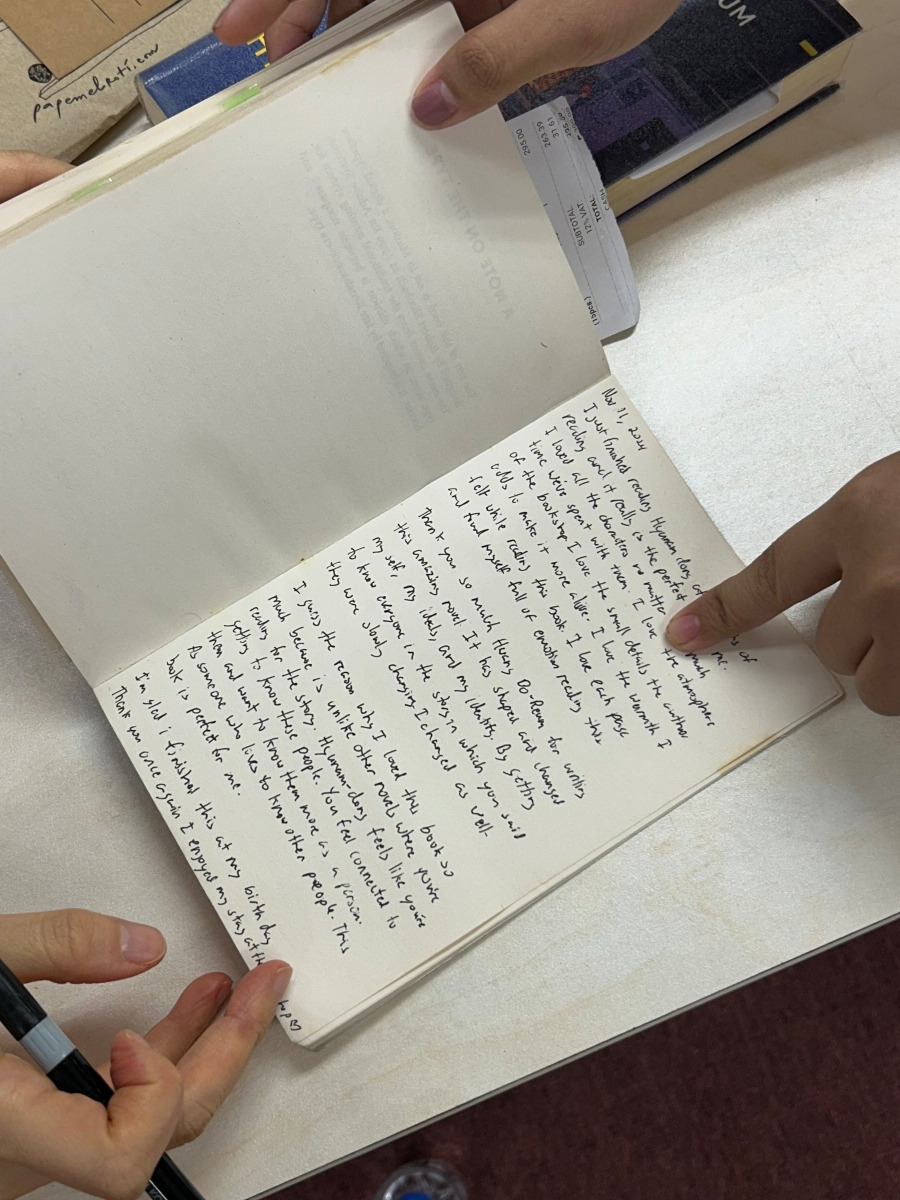 papemelroti.com
UM
295.00
263.39
31.61
295.00
SUBTOTAL
12% VAT
TOTAL
CASH
(15pcs)
A NOTE ON THE
Nov 11, 2024
I just finished reading Hyunam dong at
reading and it really is the perfect me.
I loved all the characters no matter much
time we've spent with them. I love the atmosphere
of the bookshop I love the small details the author
adds to make it more alive. I love the warmth I
felt while reading this book I love each page
and find myself full of emotion reading this
Thank you so much Hwang Bo-Reum for writing
this amazing novel It has shaped and changed
my self, my ideals, and my identity. By getting
to know everyone in the story in which you said
they were slowly changing I changed as well.
I guess the reason why I loved this book so
much because is unlike other novels where you're
reading for the story. Hyunam-dong feels like you're
getting to know these people. You feel connected to
them and want to know them more as a person.
As someone who loves to know other people. This
book is perfect for me.
I'm glad i finished this at my birthday
Thank you once again I enjoyed my stay at the